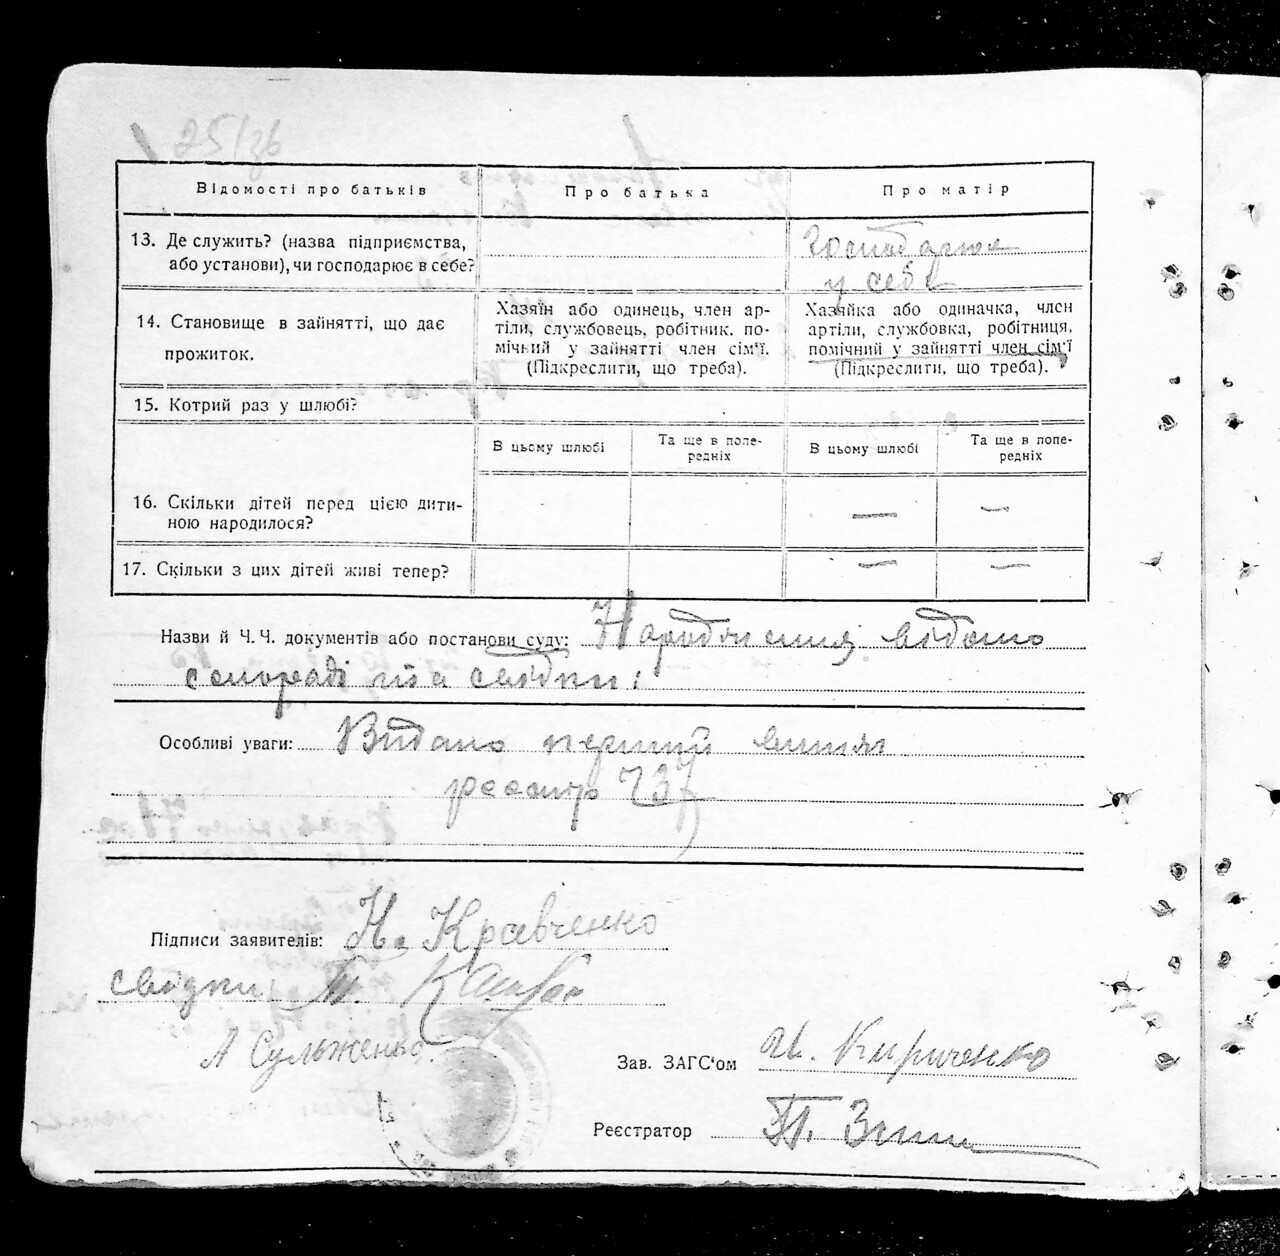 25/зв
Відомості про батьків
Про батька
Про матір
13. Де служить? (назва підприємства,
або установи), чи господарює в себе?
господарює
у себе
14. Становище в зайнятті, що дає
прожиток.
Хазяїн або одинець, член ар-
тіли, службовець, робітник, по-
мічний у зайнятті член сім'ї.
(Підкреслити, що треба).
Хазяйка або одиначка, член
артіли, службовка, робітниця,
помічний у зайнятті член сім'ї
(Підкреслити, що треба).
15. Котрий раз у шлюбі?
В цьому шлюбі
Та ще в попе-
редніх
В цьому шлюбі
Та ще в попе-
редніх
16. Скільки дітей перед цією дити-
ною народилося?
— —
17. Скільки з цих дітей живі тепер?
— —
Назви й Ч. Ч. документів або постанови суду: Народження відомо
сельраді та свідки:
Особливі уваги: Видано перший витяг
реєстр 237
Підписи заявителів: Н. Кравченко
свідки П.
А Сульженко.
Зав. ЗАГС'ом И. Кириченко
Реєстратор П.